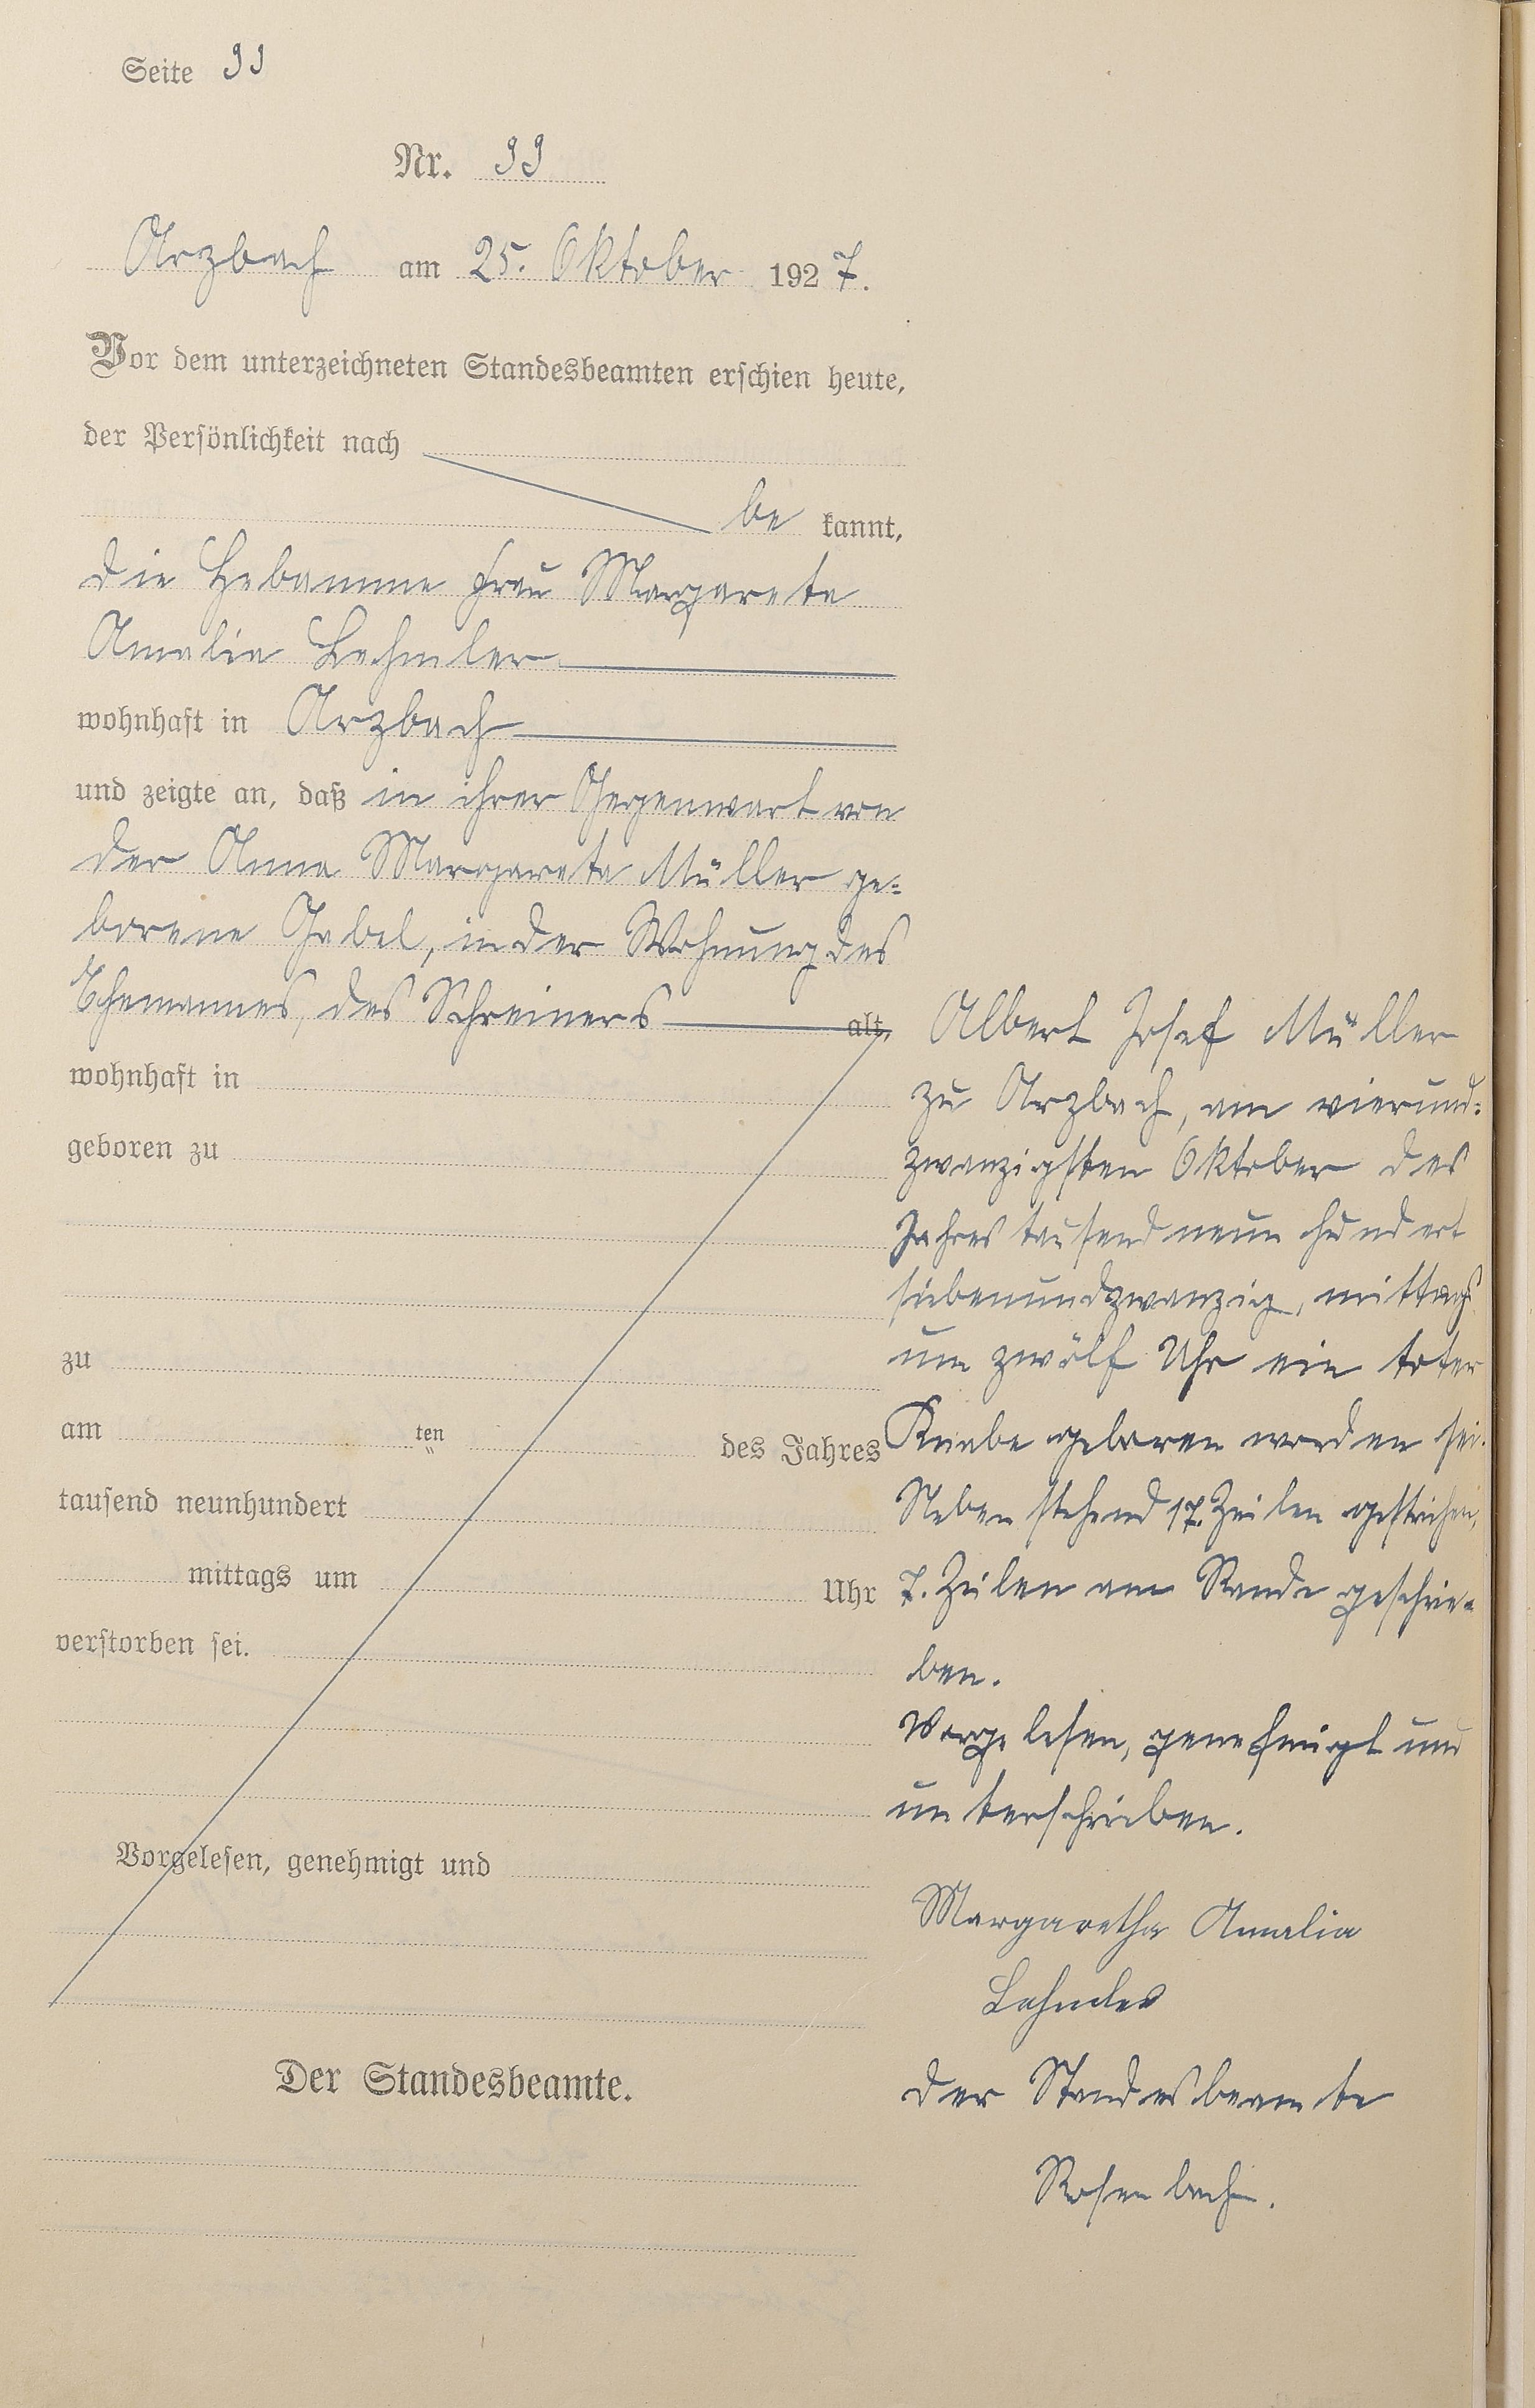 Seite 33
Nr. 33
Arzbach am 25. Oktober 1927.
Vor dem unterzeichneten Standesbeamten erschien heute,
der Persönlichkeit nach
be kannt,
die Hebamme Frau Margareta
Amalia Lehmler
wohnhaft in Arzbach
und zeigte an, daß in ihrer Gegenwart von
der Anna Margareta Müller ge=
borene Gabel, in der Wohnung des
Ehemannes, des Schreiners alt,
wohnhaft in
geboren zu
zu
am ten des Jahres
tausend neunhundert
mittags um Uhr
verstorben sei.
Vorgelesen, genehmigt und
Der Standesbeamte.
Albert Josef Müller
zu Arzbach, am vierund=
zwanzigsten Oktober des
Jahres tausend neun hundert
siebenundzwanzig, mittags
um zwölf Uhr ein toter
Knabe geboren worden sei.
Neben stehend 17. Zeilen gestrichen,
7. Zeilen am Rande geschrie=
ben.
Vorgelesen, genehmigt und
unterschrieben.
Margaretha Amalia
Lehmler
Der Standesbeamte
Rosenbach.